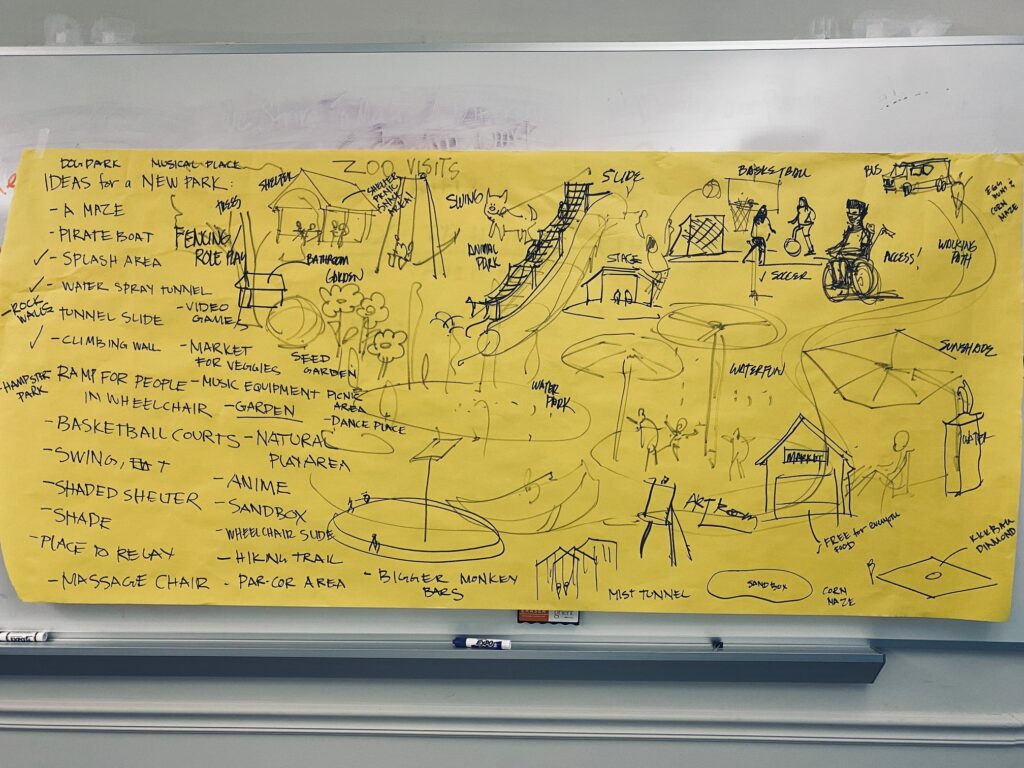 DOG PARK
MUSICAL PLACE
ZOO VISITS
IDEAS for a NEW PARK:
- A MAZE
- PIRATE BOAT
✓ - SPLASH AREA
✓ - WATER SPRAY TUNNEL
- ROCK WALLS
- TUNNEL SLIDE
✓ - CLIMBING WALL
- HAMPSTER PARK
RAMP FOR PEOPLE
IN WHEELCHAIR
- BASKETBALL COURTS
- SWING,
- SHADED SHELTER
- SHADE
- PLACE TO RELAX
- MASSAGE CHAIR
TREES
FENCING
ROLE PLAY
- VIDEO
GAMES
- MARKET
FOR VEGGIES
- MUSIC EQUIPMENT
- GARDEN
- NATURAL
PLAY AREA
- ANIME
- SANDBOX
- WHEELCHAIR SLIDE
- HIKING TRAIL
- PAR-COR AREA
- BIGGER MONKEY
BARS
PICNIC
AREA
- DANCE PLACE
SHELTER
SHELTER
PICNIC
AREA!
BATHROOM
GARDEN
SEED
GARDEN
SWING
ANIMAL
PARK
SLIDE
STAGE
BASKETBALL
✓ SOCCER
BUS
ACCESS!
WALKING
PATH
EGG
HUNT &
CORN
MAZE
SUNSHADE
WATER
PARK
WATERFUN
WATER
MARKET
FREE for
FOOD
ART ROOM
KICKBALL
DIAMOND
MIST TUNNEL
SANDBOX
CORN
MAZE
EXPO